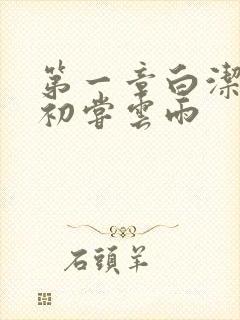 第一章白潔
初嘗雲雨
石頭羊